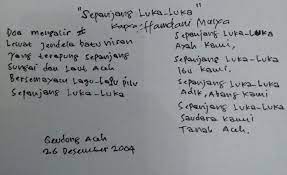 "Sepanjang Luka-Luka"
Karya: Hamdani Mulya
Doa mengalir
Lewat jendela batu nisan
Yang terapung sepanjang
Sungai dan Laut Aceh
Bersemayam Lagu-lagu pilu
Sepanjang Luka-Luka
Sepanjang Luka-Luka
Ayah Kami,
Sepanjang Luka-Luka
Ibu Kami,
Sepanjang Luka-Luka
Adik, Abang Kami
Sepanjang Luka-Luka
Saudara Kami
Tanah Aceh.
Geudong Aceh
26 Desember 2004